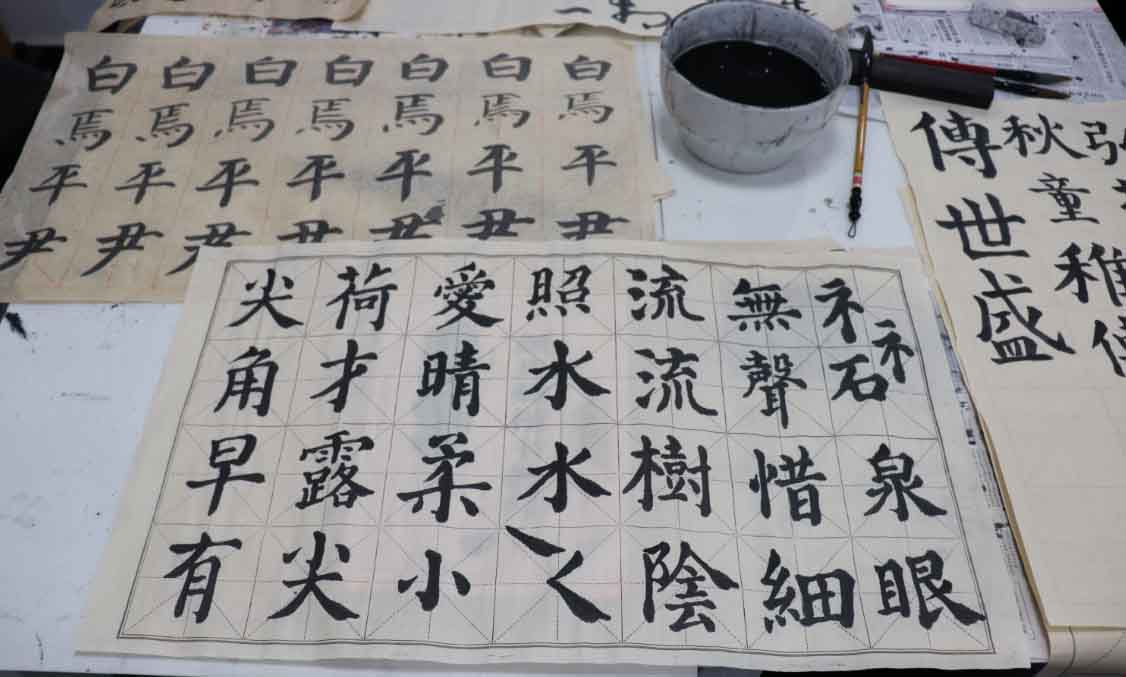 礻礻石泉眼
無聲惜細
流流樹陰
照水水
愛晴柔小
荷才露尖
尖角早有
白焉平尹
白焉平尹
白焉平尹
白焉平尹
白焉平尹
白焉平尹
白焉平尹
弘
秋童稚傳
傳世盛